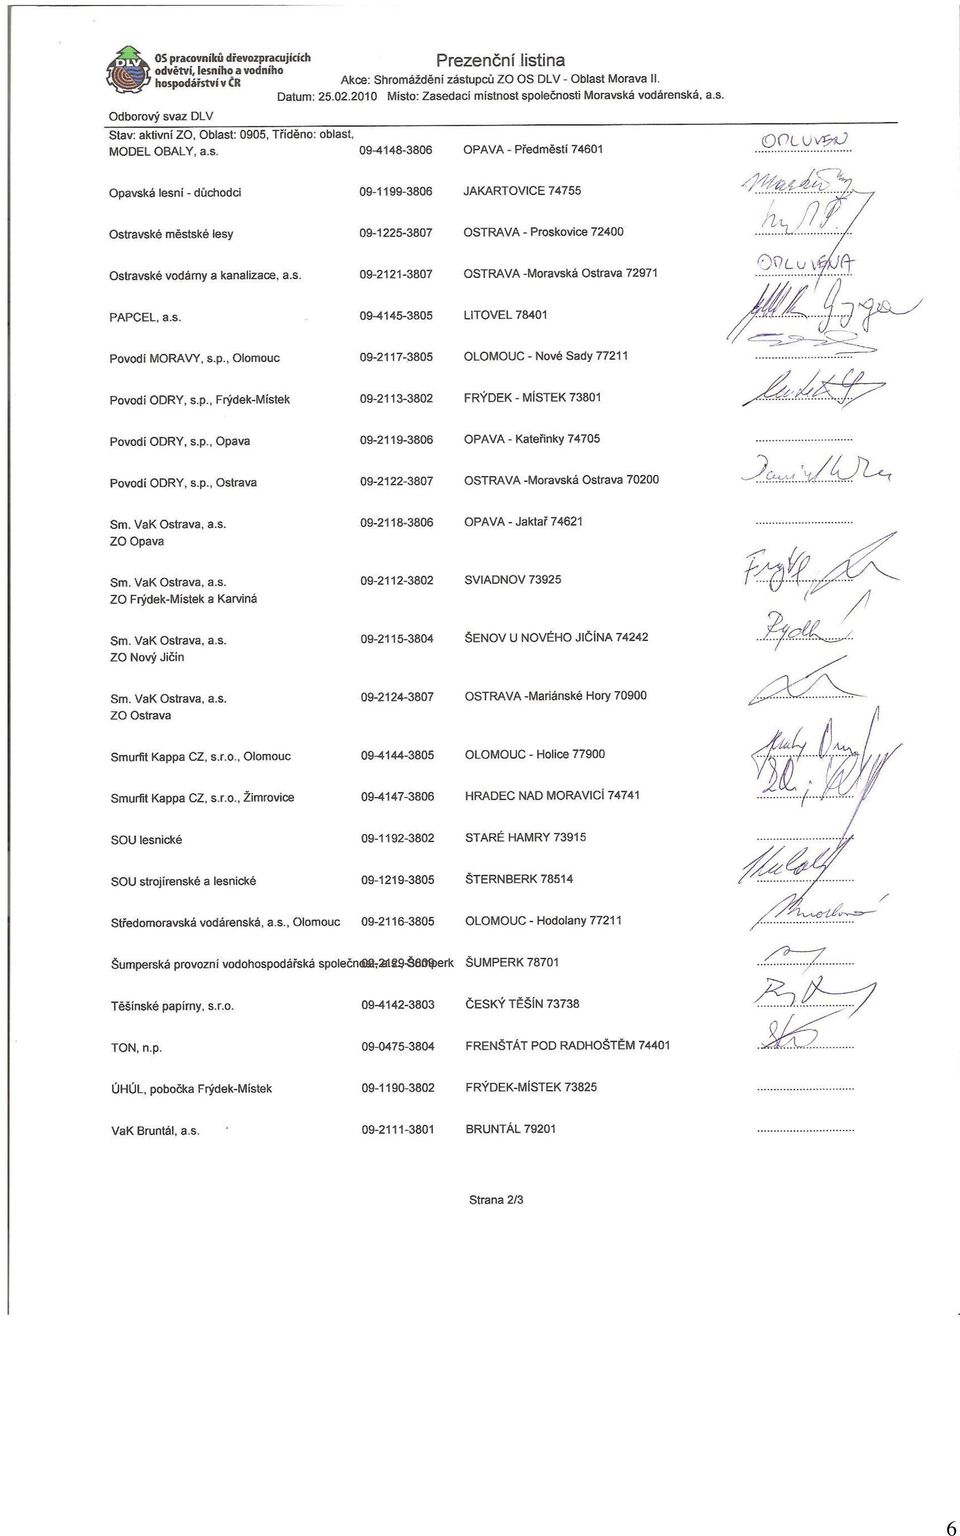 OS pracovníků dřevozpracujících
odvětví, lesního a vodního
hospodářství v ČR
DLV
Prezenční listina
Akce: Shromáždění zástupců ZO OS DLV - Oblast Morava II.
Datum: 25.02.2010 Místo: Zasedací místnost společnosti Moravská vodárenská, a.s.
Odborový svaz DLV
Stav: aktivní ZO, Oblast: 0905, Tříděno: oblast,
MODEL OBALY, a.s. 09-4148-3806 OPAVA - Předměstí 74601 OMLUVEN
Opavská lesní - důchodci 09-1199-3806 JAKARTOVICE 74755
Ostravské městské lesy 09-1225-3807 OSTRAVA - Proskovice 72400
Ostravské vodárny a kanalizace, a.s. 09-2121-3807 OSTRAVA -Moravská Ostrava 72971 OMLUVENA
PAPCEL, a.s. 09-4145-3805 LITOVEL 78401
Povodí MORAVY, s.p., Olomouc 09-2117-3805 OLOMOUC - Nové Sady 77211
Povodí ODRY, s.p., Frýdek-Místek 09-2113-3802 FRÝDEK - MÍSTEK 73801
Povodí ODRY, s.p., Opava 09-2119-3806 OPAVA - Kateřinky 74705
Povodí ODRY, s.p., Ostrava 09-2122-3807 OSTRAVA -Moravská Ostrava 70200
Sm. VaK Ostrava, a.s. 09-2118-3806 OPAVA - Jaktař 74621
ZO Opava
Sm. VaK Ostrava, a.s. 09-2112-3802 SVIADNOV 73925
ZO Frýdek-Místek a Karviná
Sm. VaK Ostrava, a.s. 09-2115-3804 ŠENOV U NOVÉHO JIČÍNA 74242
ZO Nový Jičín
Sm. VaK Ostrava, a.s. 09-2124-3807 OSTRAVA -Mariánské Hory 70900
ZO Ostrava
Smurfit Kappa CZ, s.r.o., Olomouc 09-4144-3805 OLOMOUC - Holice 77900
Smurfit Kappa CZ, s.r.o., Žimrovice 09-4147-3806 HRADEC NAD MORAVICÍ 74741
SOU lesnické 09-1192-3802 STARÉ HAMRY 73915
SOU strojírenské a lesnické 09-1219-3805 ŠTERNBERK 78514
Středomoravská vodárenská, a.s., Olomouc 09-2116-3805 OLOMOUC - Hodolany 77211
Šumperská provozní vodohospodářská ŠUMPERK 78701
Těšínské papírny, s.r.o. 09-4142-3803 ČESKÝ TĚŠÍN 73738
TON, n.p. 09-0475-3804 FRENŠTÁT POD RADHOŠTĚM 74401
ÚHÚL, pobočka Frýdek-Místek 09-1190-3802 FRÝDEK-MÍSTEK 73825
VaK Bruntál, a.s. 09-2111-3801 BRUNTÁL 79201
Strana 2/3
6